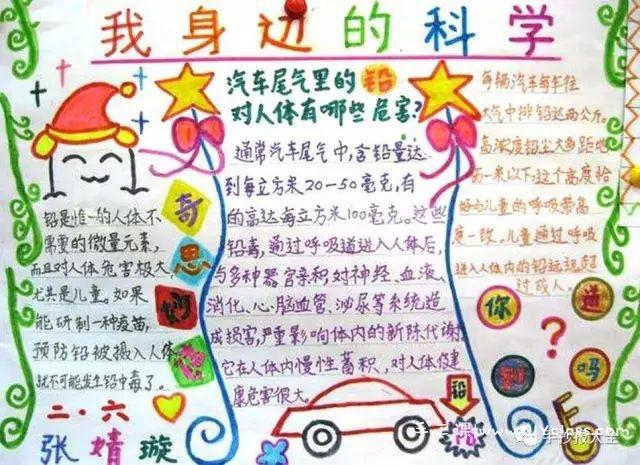 我身边的科学
汽车尾气里的铅
对人体有哪些危害?
铅是惟一的人体不
需要的微量元素,
而且对人体危害极大,
尤其是儿童。如果
能研制一种疫苗,
预防铅被摄入人体
就不可能发生铅中毒了。
奇
思
妙
想
二·六
张婧璇
通常汽车尾气中,含铅量达
到每立方米20—50毫克,有
的高达每立方米100毫克。这些
铅毒,通过呼吸道进入人体后,
与多种器官亲积,对神经、血液、
消化、心、脑血管、泌尿等系统造
成损害,严重影响体内的新陈代谢,
它在人体内慢性蓄积,对人体健
康危害很大。
每辆汽车每年往
大气中排铅达两公斤。
高浓度铅尘大多距地
面一米以下,这个高度恰
好与儿童的呼吸带高
度一致。儿童通过呼吸
进入人体内的铅远远超
过成人。
你
知
道
吗
?
铅
Pb
手抄报大全